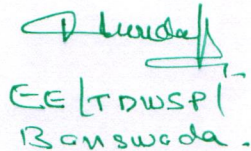 EE/TDWSP/
Banswada.